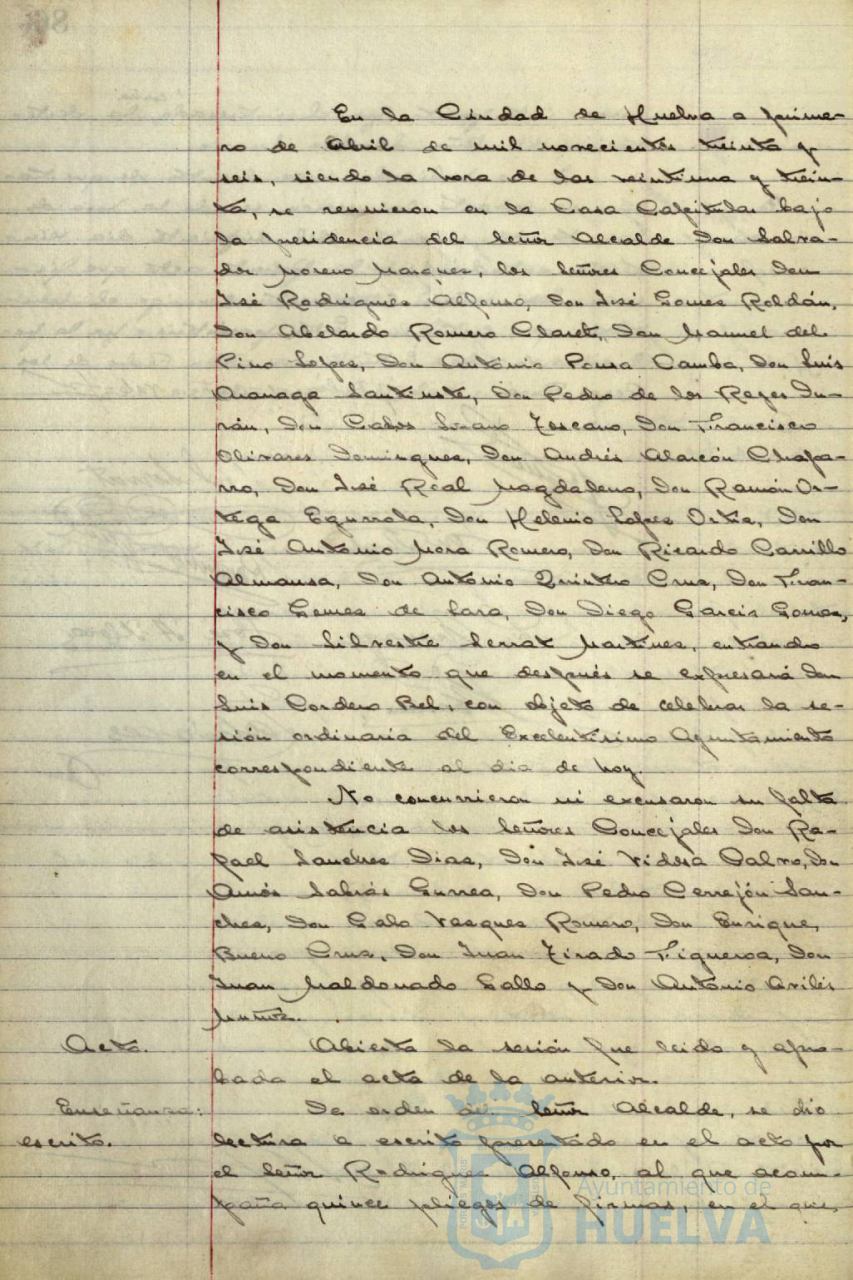 En la Ciudad de Huelva a prime-
ro de Abril de mil novecientos treinta y
seis, siendo la hora de las veintiuna y trein-
ta, se reunieron en la Casa Capitular bajo
la presidencia del Señor Alcalde Don Salva-
dor Moreno Marquez, los Señores Concejales Don
José Rodríguez Alfonso, Don José Gomez Roldán,
Don Abelardo Romero Claret, Don Manuel del
Pino Lopez, Don António Ponsa Camba, Don Luis
Aranaga Santiuste, Don Pedro de los Reyes Du-
rán, Don Carlos Lozano Toscano, Don Francisco
Olivares Dominguez, Don Andrés Alarcón Chapa-
rro, Don José Real Magdaleno, Don Ramón Or-
tega Ezurrola, Don Helenio Lopez Ortiz, Don
José António Mora Romero, Don Ricardo Carrillo
Almansa, Don António Quintero Cruz, Don Fran-
cisco Gomez de Lara, Don Diego Garcia Gomez,
y Don Silvestre Serrat Martinez, entrando
en el momento que después se expresará Don
Luis Cordero Bel, con objeto de celebrar la se-
sión ordinaria del Excelentísimo Ayuntamiento
correspondiente al dia de hoy.
No concurrieron ni excusaron su falta
de asistencia los Señores Concejales Don Ra-
fael Sanchez Diaz, Don José Vidosa Calvo, Don
Amós Sabrás Gurrea, Don Pedro Cerrejón San-
chez, Don Galo Vazquez Romero, Don Enrique
Bueno Cruz, Don Juan Tirado Figueroa, Don
Juan Maldonado Gallo y Don António Avilés
Muñoz.
Acto. Abierta la sesión fue leido y apro-
bada el acta de la anterior.
Enseñanza: De orden del Señor Alcalde, se dio
escrito. lectura a escrito presentado en el acto por
el Señor Rodríguez Alfonso, al que acom-
paña quince pliegos de firmas, en el que,
Ayuntamiento de
HUELVA